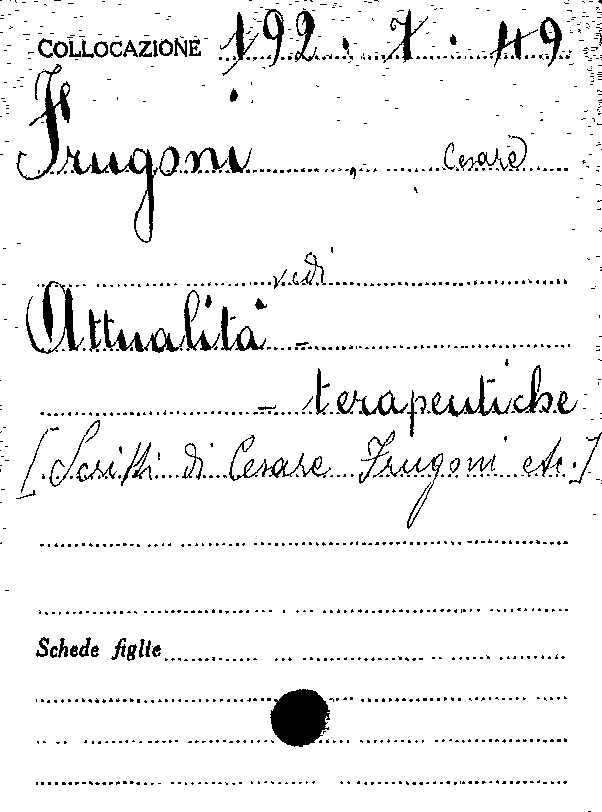 COLLOCAZIONE 192.7.49
Frugoni, Cesare
vedi
Attualità -
- terapeutiche
[Scritti di Cesare Frugoni etc.]
Schede figlie